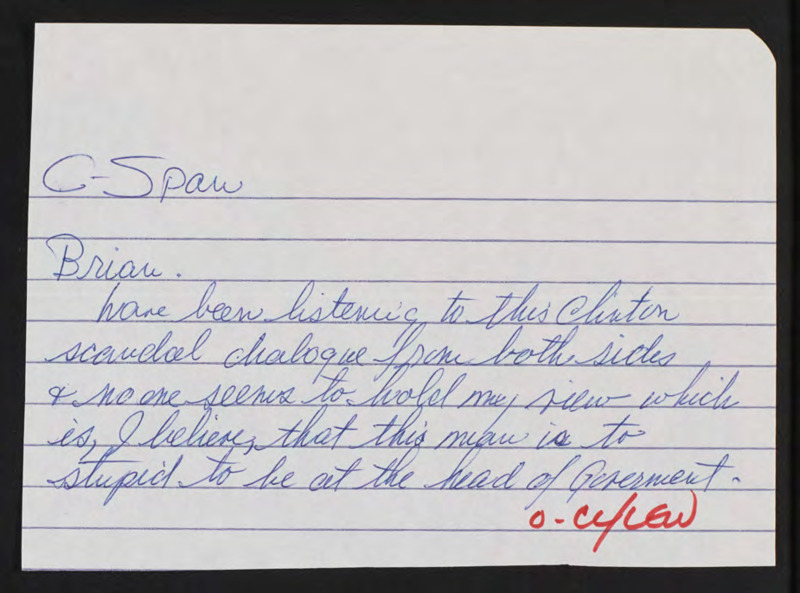 C-Span
Brian.
have been listening to this Clinton
scandal dialogue from both sides
& no one seems to hold my view which
is, I believe, that this man is to
stupid to be at the head of Goverment.
O-